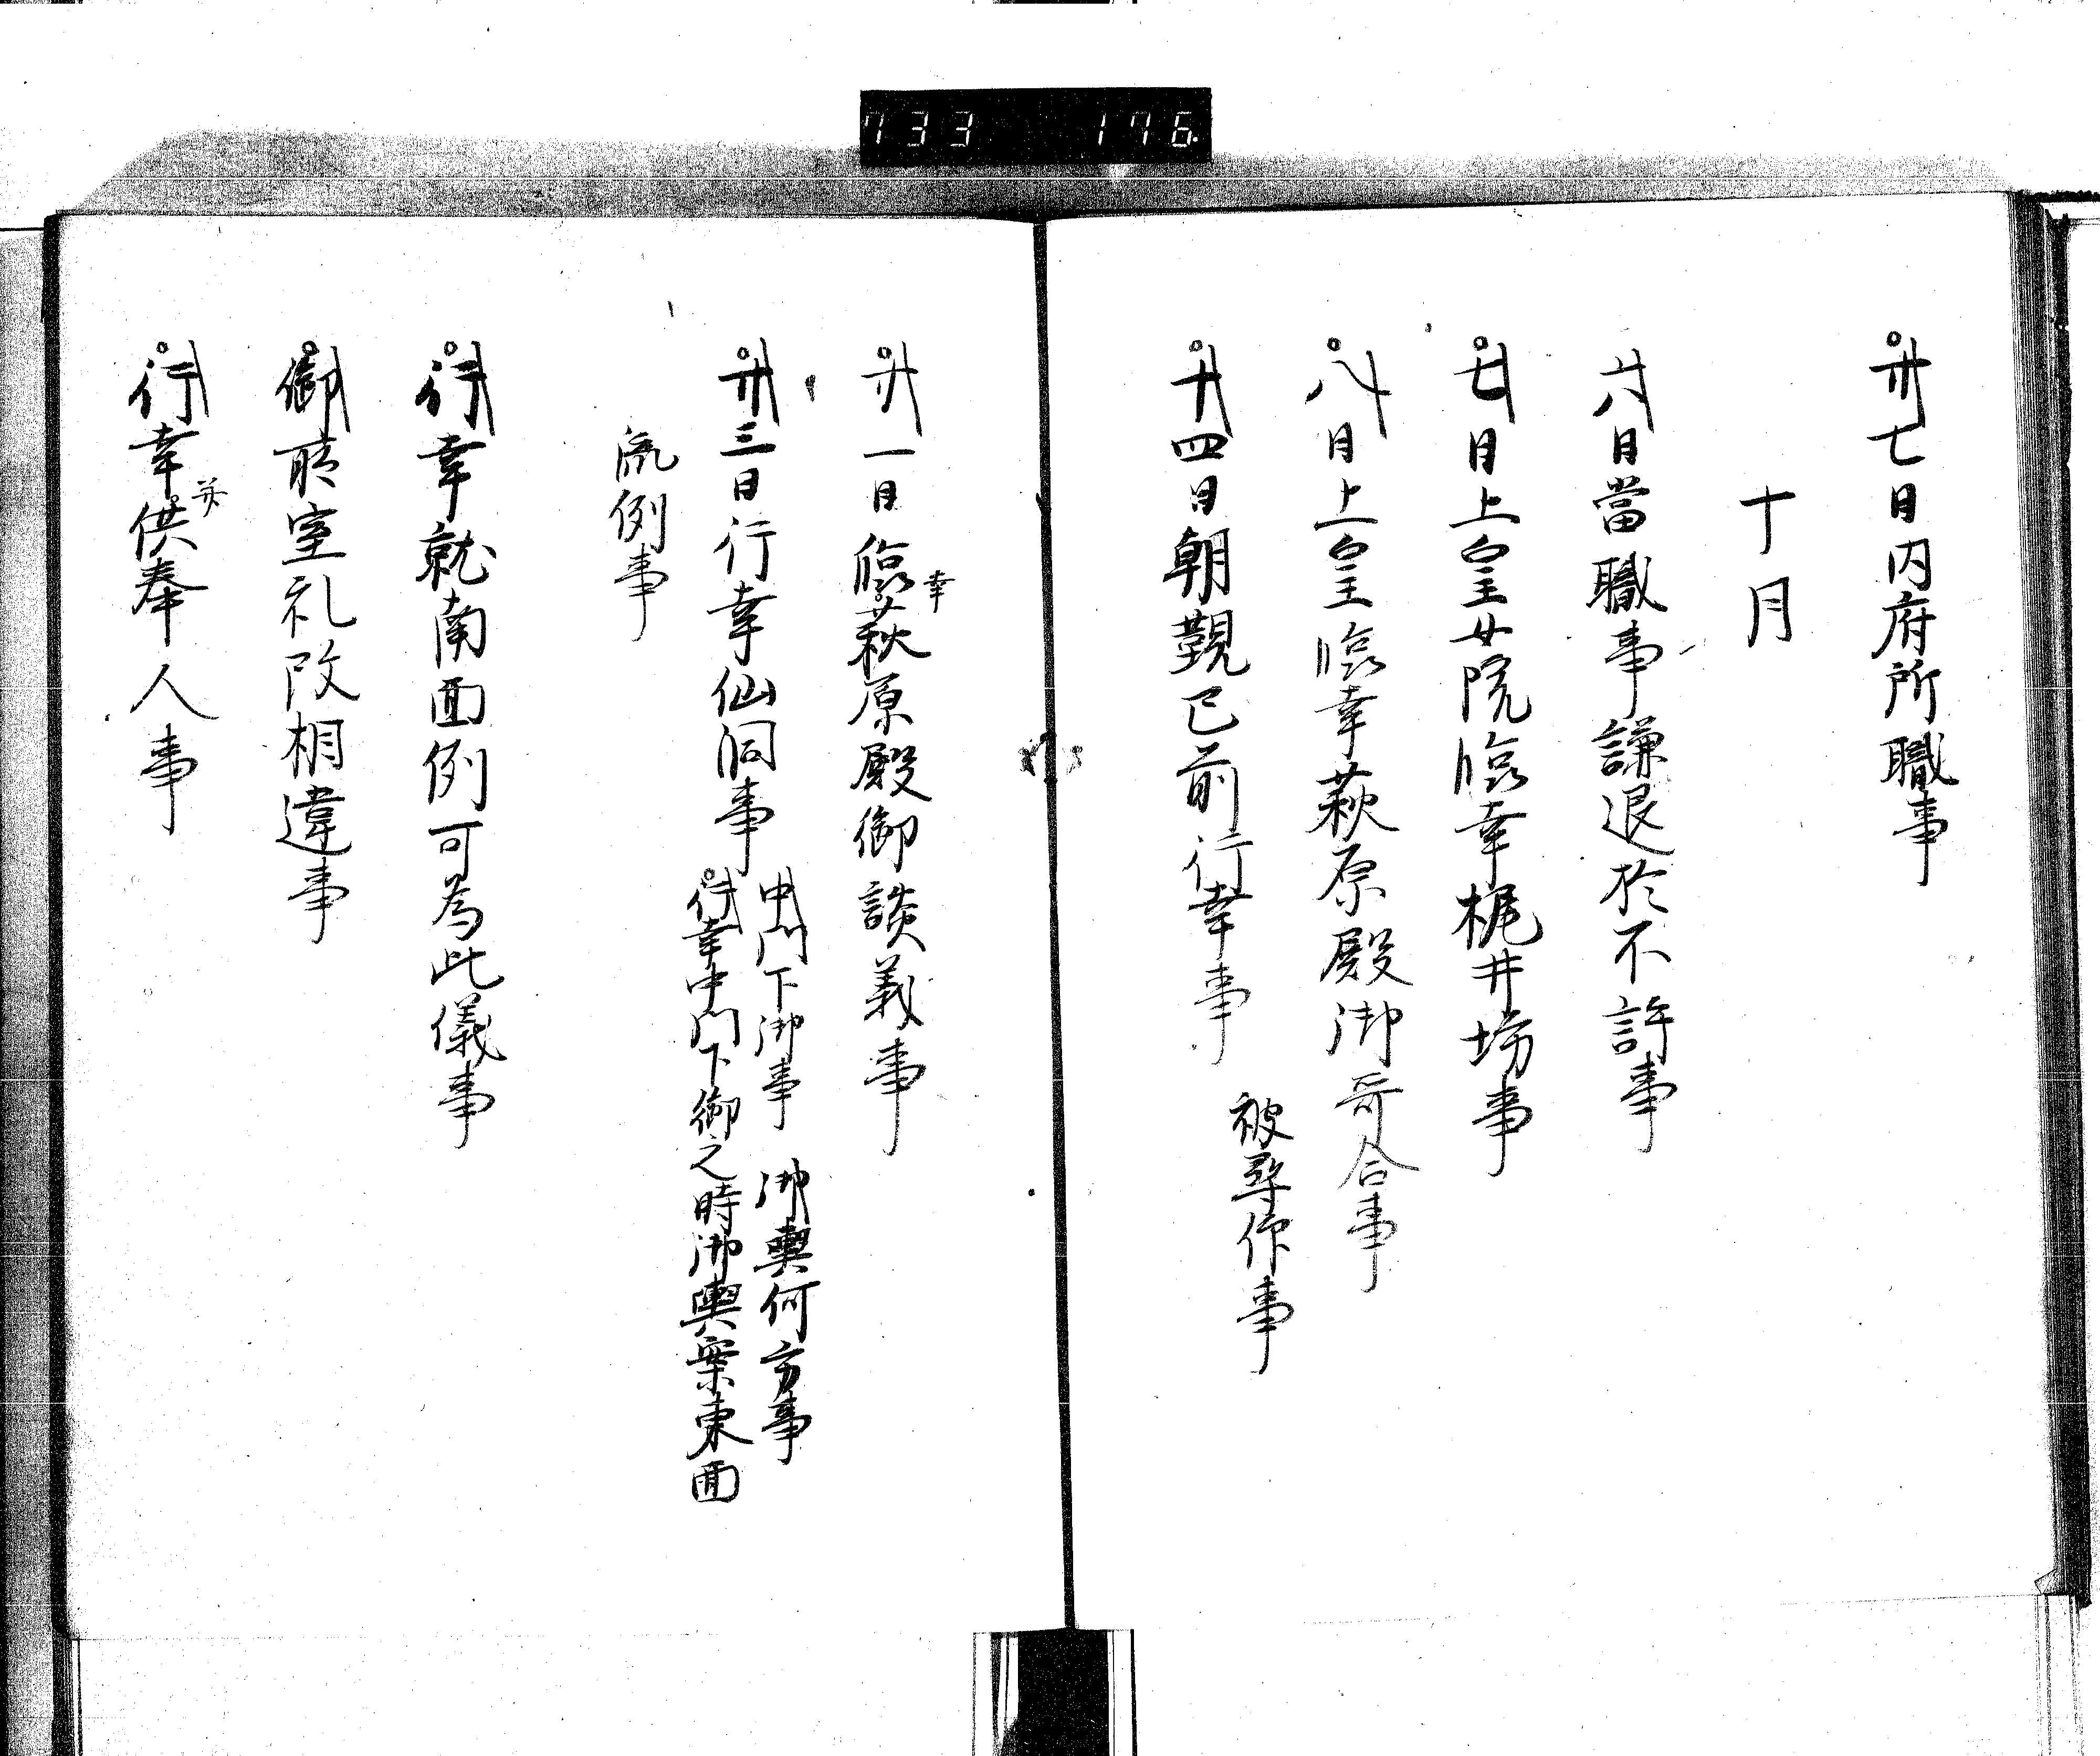 733 176
廿七日内府所職事
十月
六日當職事謙退於不許事
七日上皇女院臨幸梶井坊事
八日上皇臨幸萩原殿御哥合事
十四日朝覲已前行幸事
被尋仰事
廿一日臨幸萩原殿御談義事
廿三日行幸仙洞事
中門下御事 御輿何方事
行幸中門下御之時御輿案東面
流例事
行幸就南面例可為此儀事
御室礼改相違事
行幸并供奉人事